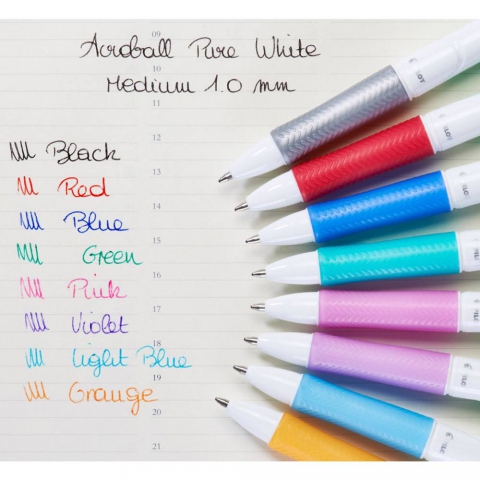 Acroball Pure White
Medium 1.0 mm
Black
Red
Blue
Green
Pink
Violet
Light Blue
Orange
09
10
11
12
13
14
15
16
17
18
19
20
21